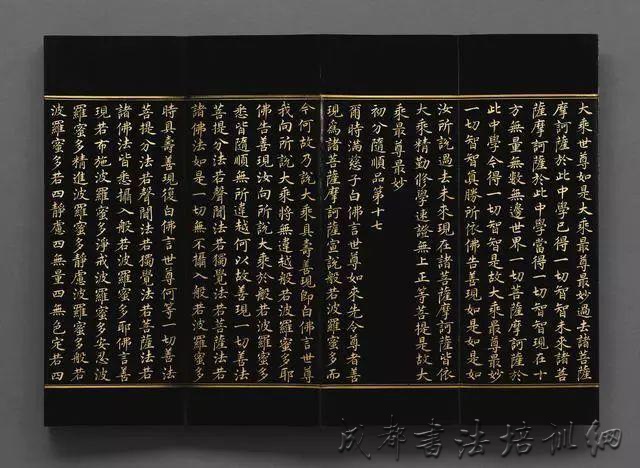 大乘世尊如是大乘最尊最妙過去諸菩薩
摩訶薩於此中學已得一切智智未來諸菩
薩摩訶薩於此中學當得一切智智現在十
方無量無數無邊世界一切菩薩摩訶薩於
此中學今得一切智智是故大乘最尊最妙
一切智智真勝所依佛告善現如是如是如
汝所說過去未來現在諸菩薩摩訶薩皆依
大乘精勤修學速證無上正等菩提是故大
乘最尊最妙
初分隨順品第十七
爾時滿慈子白佛言世尊如來先令尊者善
現為諸菩薩摩訶薩宣說般若波羅蜜多而
今何故乃說大乘具壽善現即白佛言世尊
我向所說大乘將無違越般若波羅蜜多耶
佛告善現汝向所說大乘於般若波羅蜜多
悉皆隨順無所違越何以故善現一切善法
菩提分法若聲聞法若獨覺法若菩薩法若
諸佛法如是一切無不攝入般若波羅蜜多
時具壽善現復白佛言世尊何等一切善法
菩提分法若聲聞法若獨覺法若菩薩法若
諸佛法皆悉攝入般若波羅蜜多耶佛言善
現若布施波羅蜜多淨戒波羅蜜多安忍波
羅蜜多精進波羅蜜多靜慮波羅蜜多般若
波羅蜜多若四靜慮四無量四無色定若四
成都書法培訓網